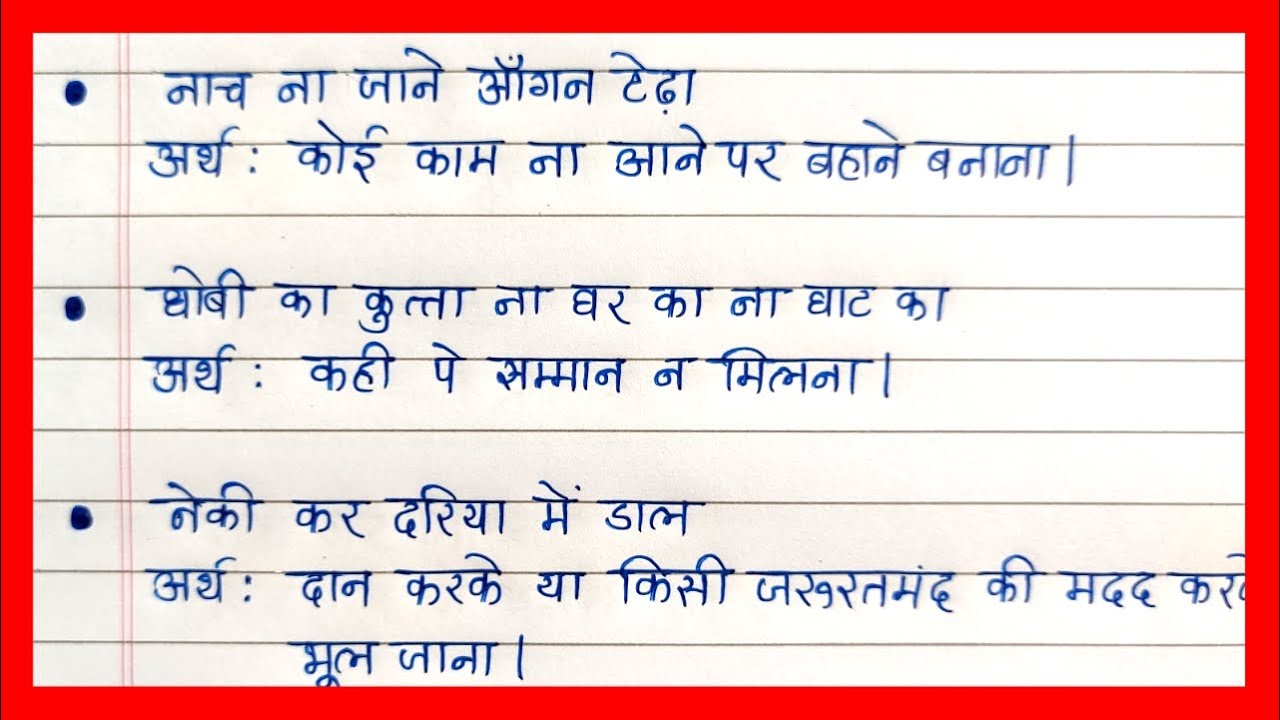 नाच ना जाने आँगन टेढ़ा
अर्थ : कोई काम ना आने पर बहाने बनाना।
धोबी का कुत्ता ना घर का ना घाट का
अर्थ : कही पे सम्मान न मिलना।
नेकी कर दरिया में डाल
अर्थ : दान करके या किसी जरूरतमंद की मदद
भूल जाना।